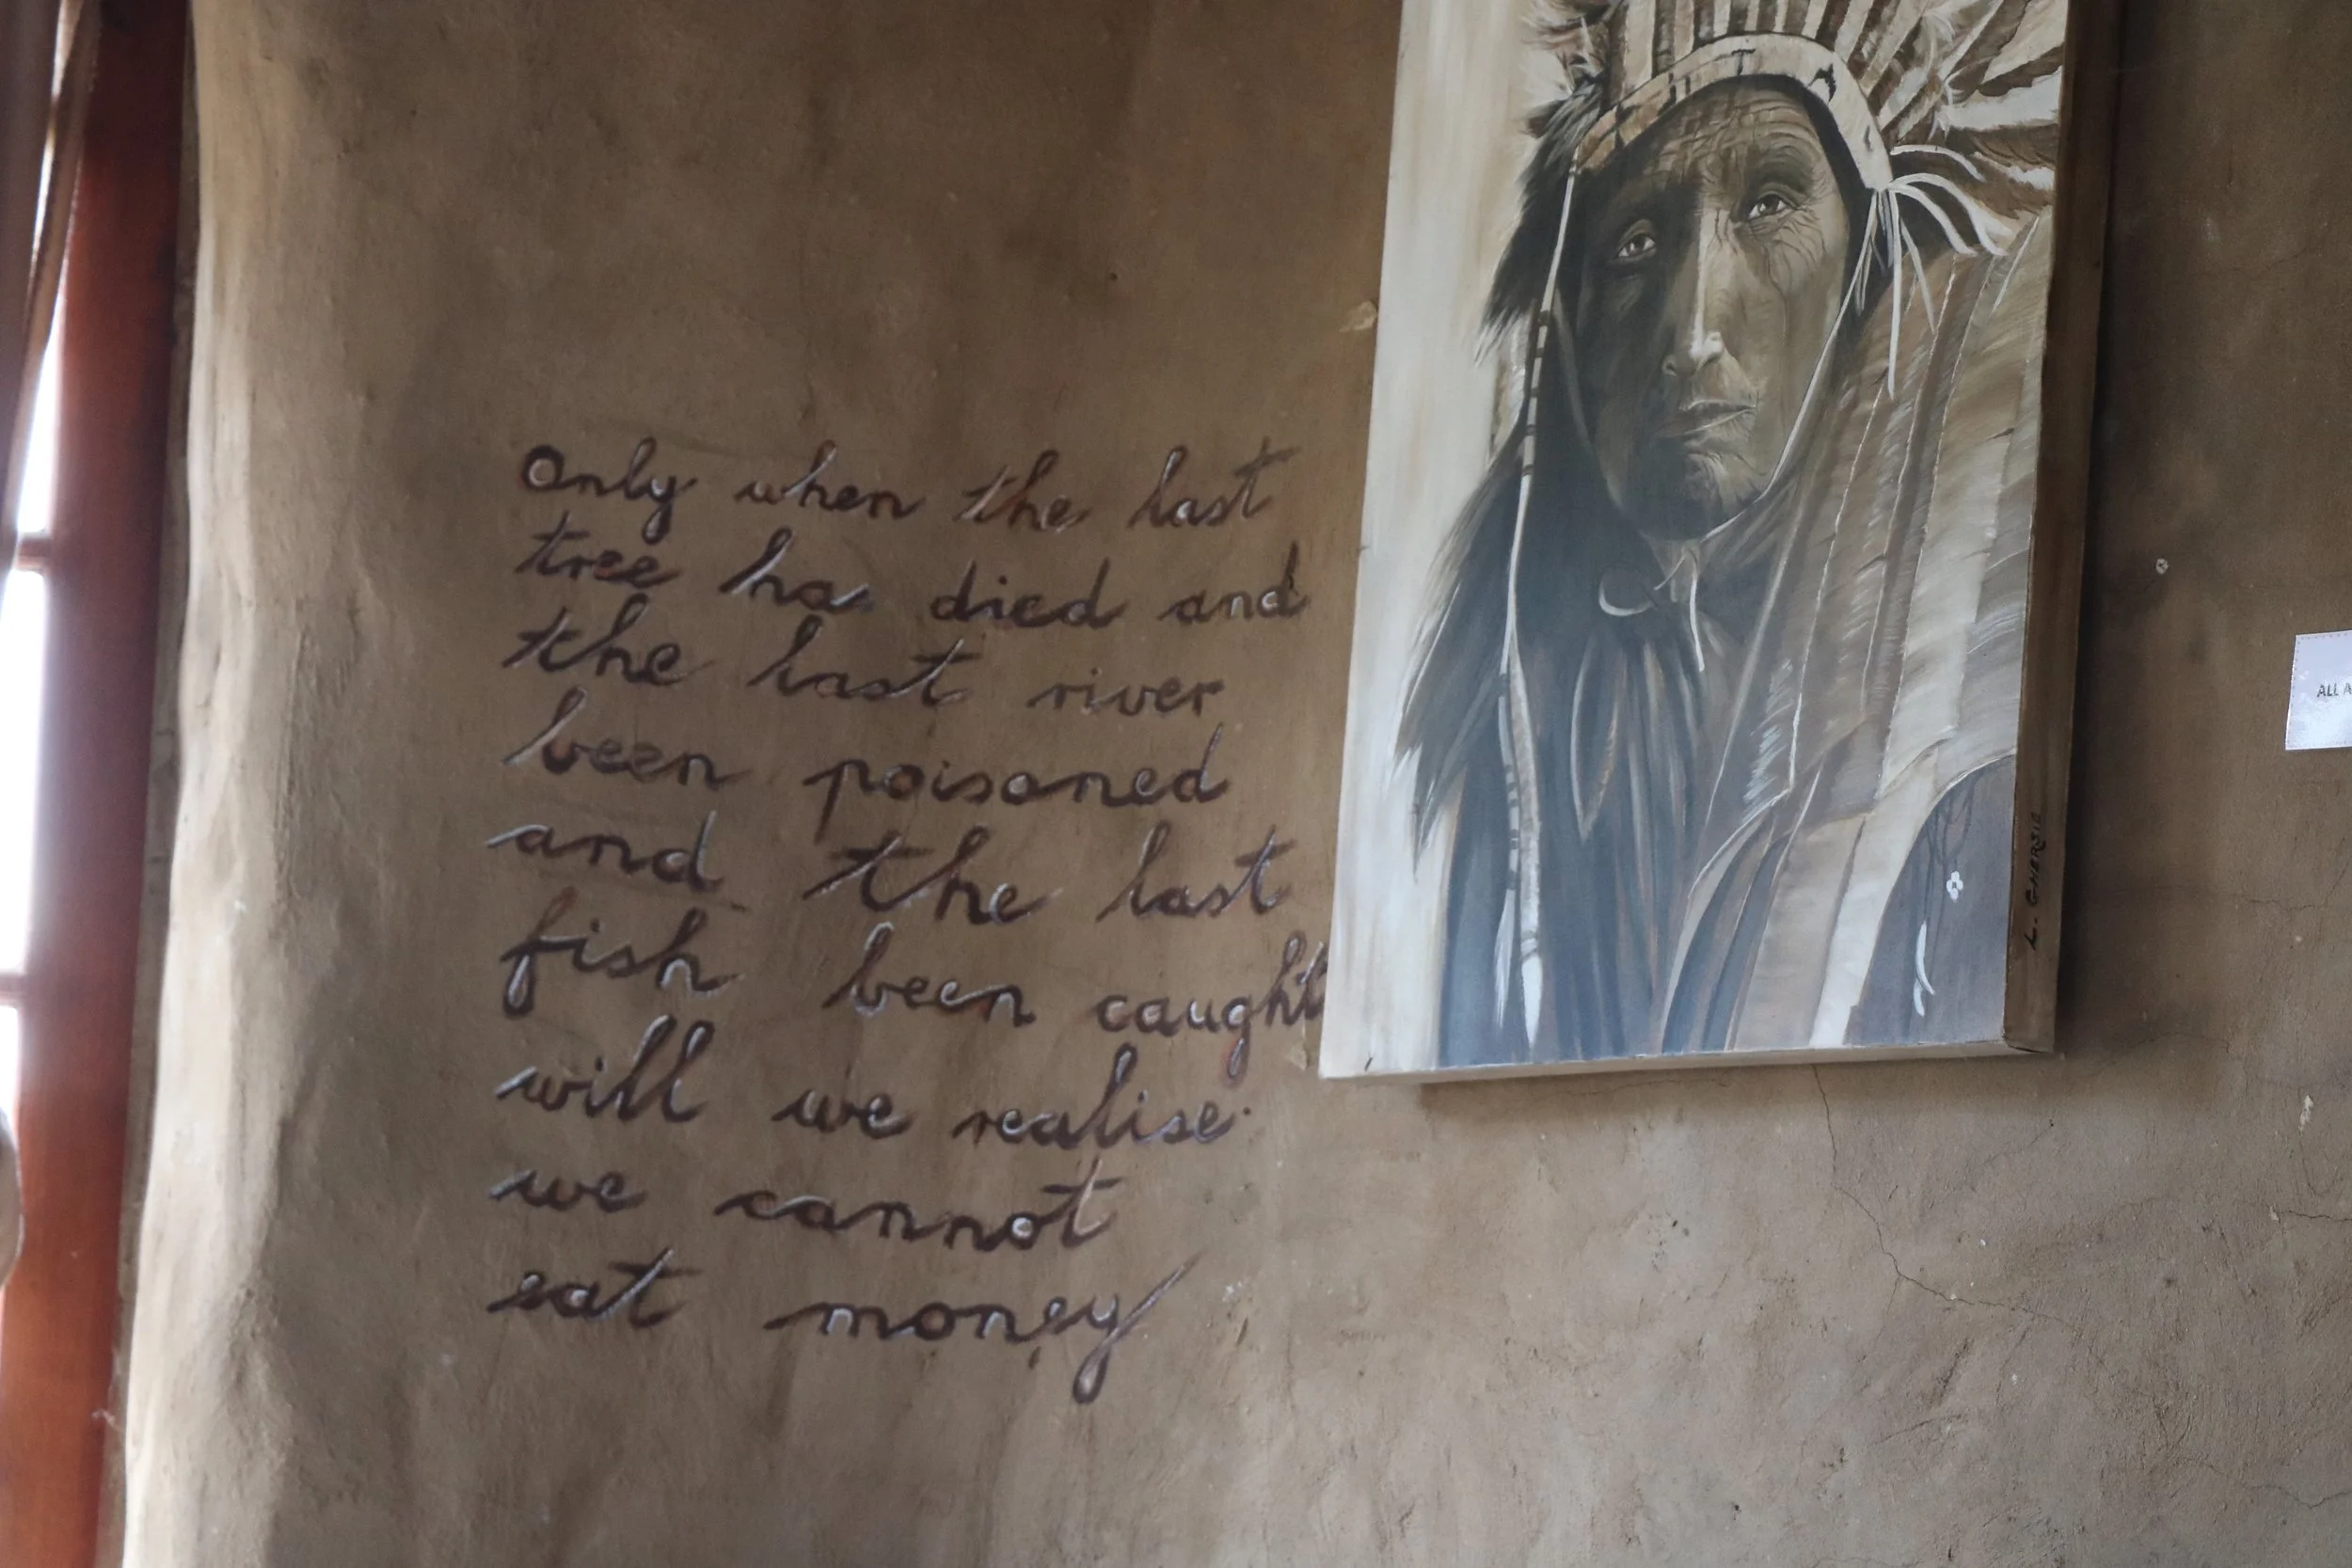 Only when the last
tree has died and
the last river
been poisoned
and the last
fish been caught
will we realise
we cannot
eat money
ALL